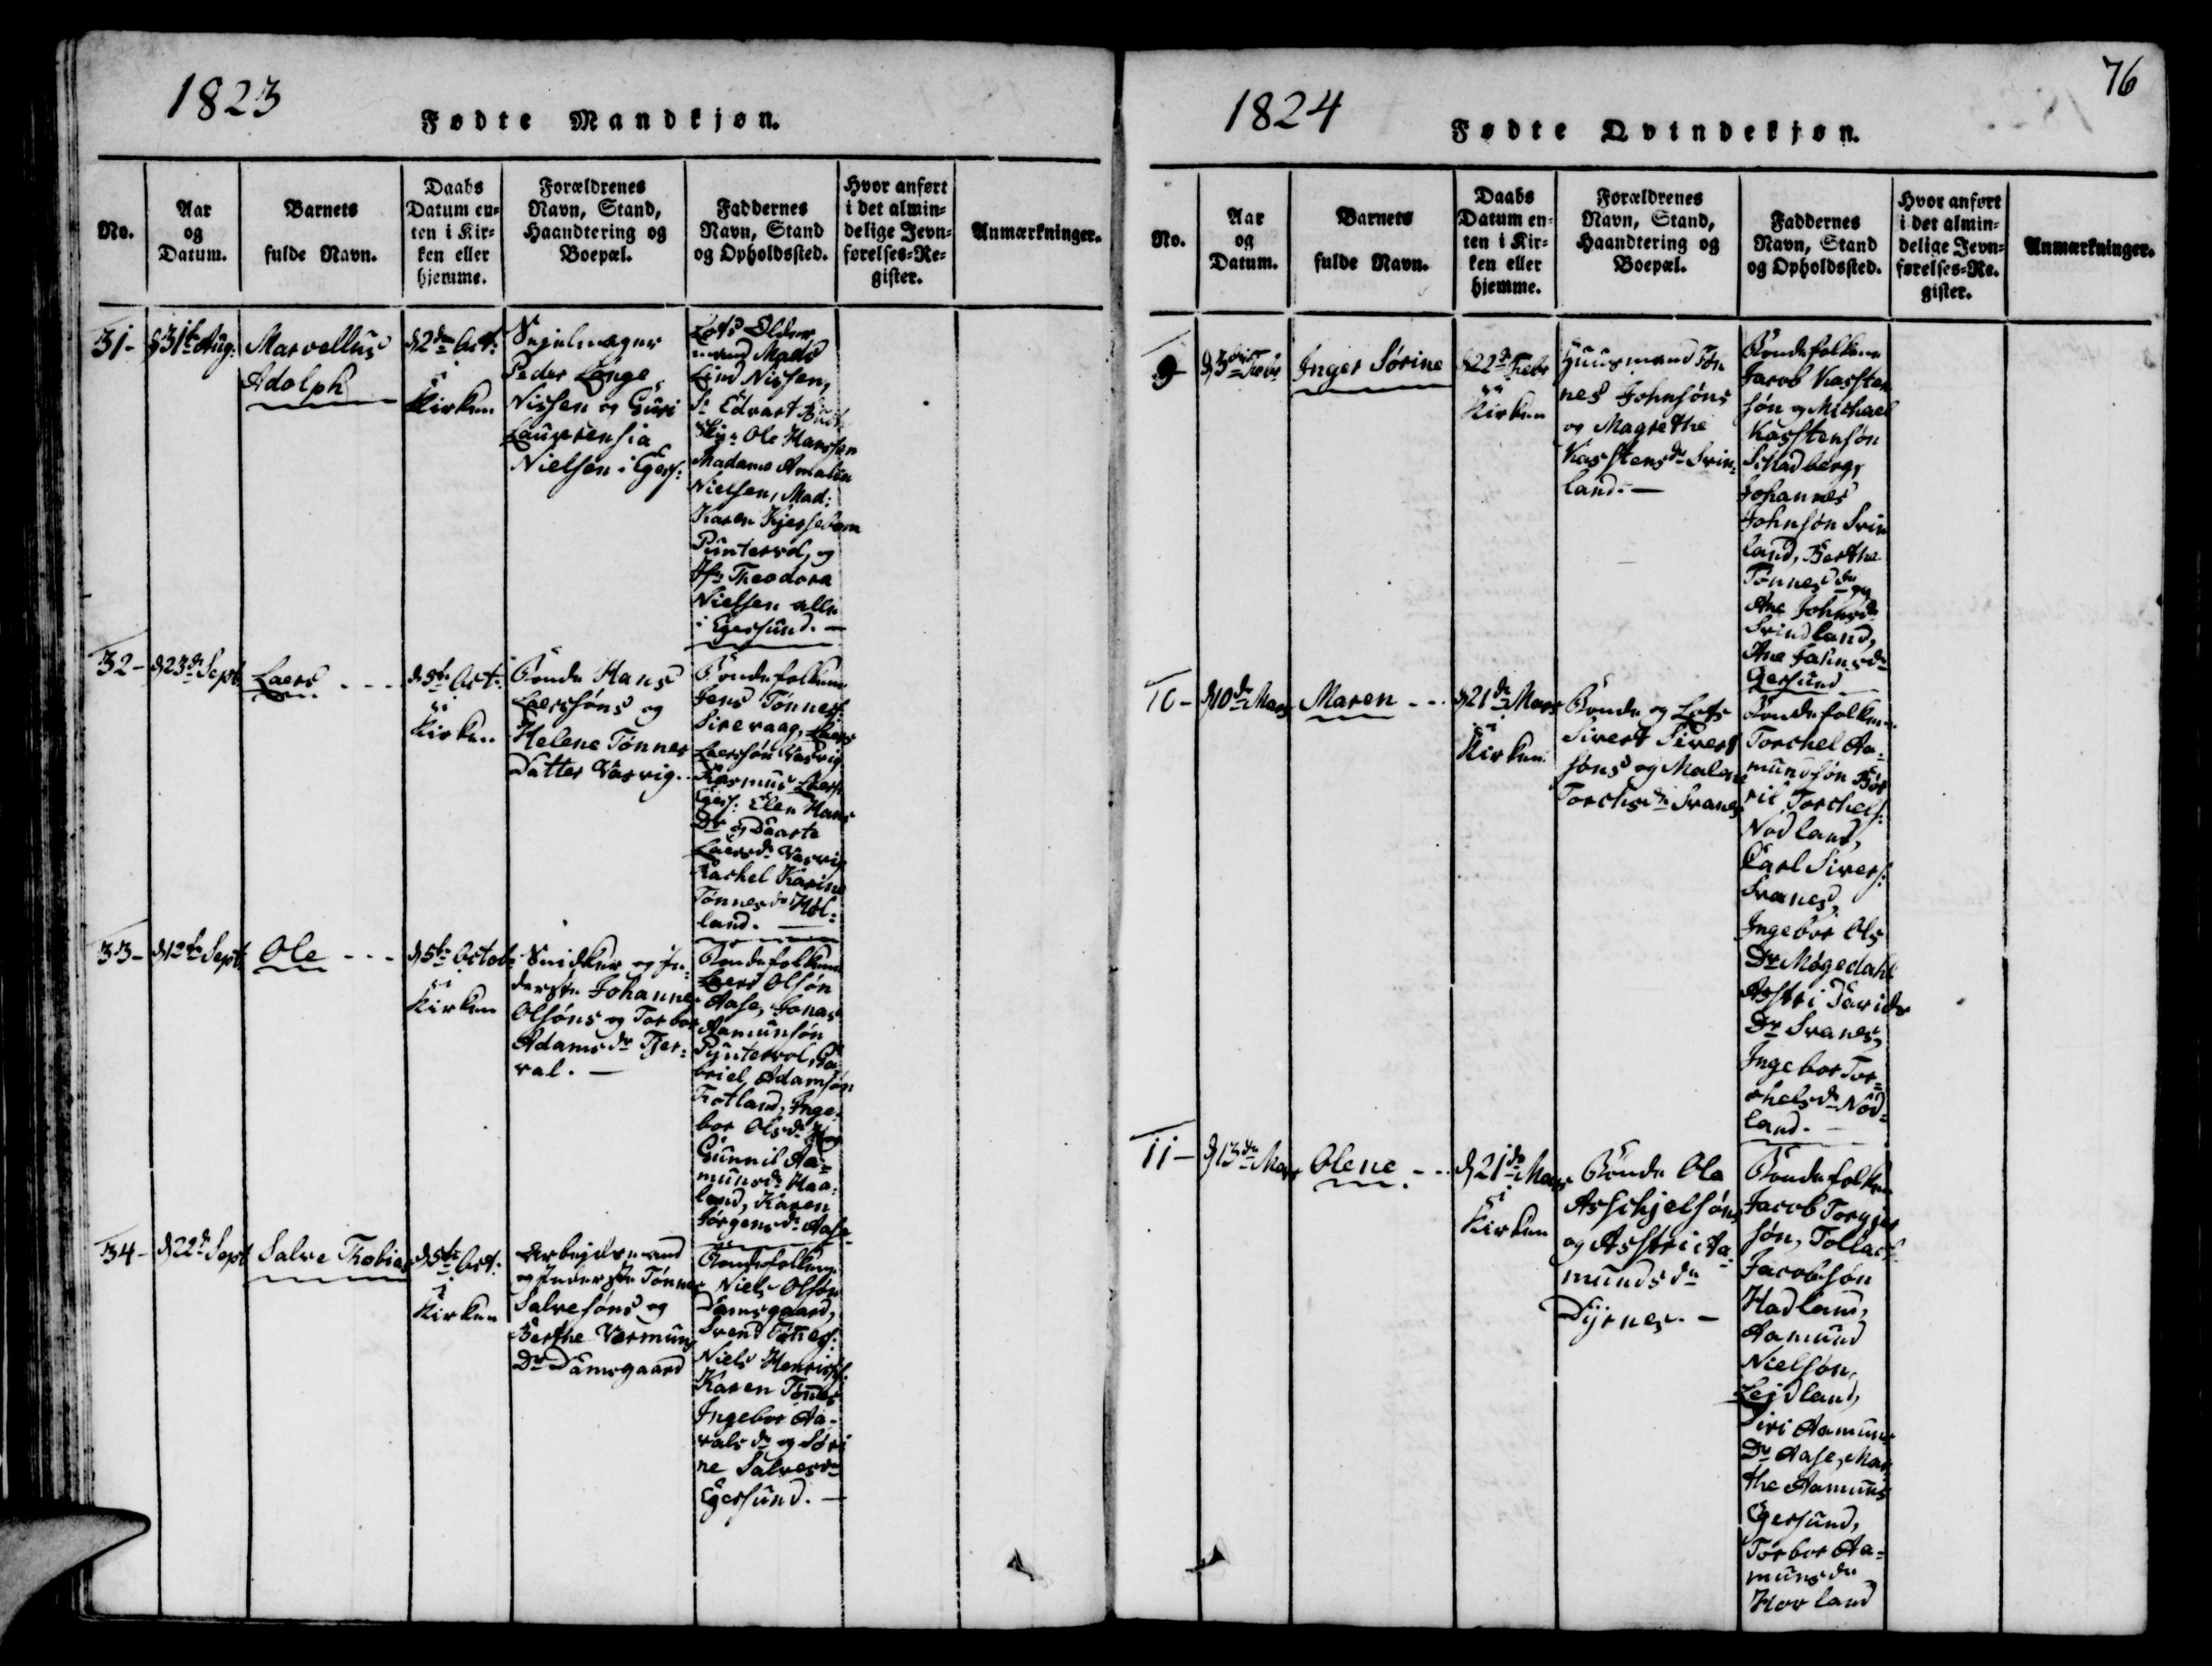 1823
Fødte Mandkjøn.
No.
Aar
og
Datum.
Barnets
fulde Navn.
Daabs
Datum en-
ten i Kir-
ken eller
hjemme.
Forældrenes
Navn, Stand,
Haandtering og
Boepæl.
Faddernes
Navn, Stand
og Opholdssted.
Hvor anført
i det almin-
delige Jevn-
førelses-Re-
gister.
Anmærkninger.
31-
d 31te Aug:
Marcellus
Adolph
d 2den Oct:
i
Kirken
Seigelmager
Peder Lange
Nissen og Guri
Laurensia
Nielsen i Egers:
Lods Older
mand Mads
Lind Nissen,
Sr Edvart
Ole Hanssen
Madame Amalia
Nielsen, Mad:
Karen
Puntervol, og
Jfr Theodora
Nielsen alle
i Egersund. —
32-
d 23de Sept
Laers
d 5te Oct:
i
Kirken
Bonde Hans
Laersøns og
Helene Tønnes
Datter Varvig.
Bondefolkene
Jens Tønness:
Sirevaag, Laers
Laersøn Varvig
Rasmus Laers:
Egers: Elen Hans
Dr og Daarte
Laersdr Varvig
Rachel Karine
Tønnesdr Høl-
land. —
33-
d 12te Sept
Ole
d 5te Octob
i
Kirken
Snidker og In-
derste Johannes
Olsøns og Torbor
Adamsdr Tjer-
val. —
Bondefolkene
Laers Olsøn
Aase, Jonas
Aamunsøn
Puntervol, Ga-
briel Adamsøn
Birkeland, Inge-
bor Olsdr
Gunnil Aa-
munsdr Haa-
land, Karen
Jørgensdr Aase
34-
d 22de Sept
Salve Thobias
d 5te Oct:
i
Kirken
Arbejdsmand
og Inderste Tønnes
Salvesøns og
Berthe Vermuns
Dr Damsgaard
Bondefolkene
Niels Olsøn
Damsgaard,
Svend Tønnes:
Niels Henrichs:
Karen Tønnes
Ingebor Aa-
valsdr og Søri
ne Salvesdr
Egersund. —
76
1824
Fødte Qvindekjøn.
No.
Aar
og
Datum.
Barnets
fulde Navn.
Daabs
Datum en-
ten i Kir-
ken eller
hjemme.
Forældrenes
Navn, Stand,
Haandtering og
Boepæl.
Faddernes
Navn, Stand
og Opholdssted.
Hvor anført
i det almin-
delige Jevn-
førelses-Re-
gister.
Anmærkninger.
9-
d 3die Febr
Inger Sørine
d 22de Febr
i
Kirken
Huusmand Tøn
nes Johnsøns
og Magrethe
Karstensdr Svin-
land. —
Bondefolkene
Jacob Karsten
søn og Michael
Karstensøn
Schadberg,
Johannes
Johnsøn Svin
land, Berthe
Tønnesdr og
Ane Johnsdr
Svindland,
Ane Jahnsdr
Egersund
10-
d 10de Mars
Maren
d 21de Mars
i
Kirken
Bonde og Lods
Sivert Sivert
søns og Malene
Torchsdr Svanes
Bondefolkene
Torchel Aa-
mundsøn Bør
ril Torchels:
Nodland,
Carl Sivers:
Svanes,
Ingebor Ols
Dr Mögedahl
Asstri Davids
Dr Svanes,
Ingebor Tor-
chelsdr Nod-
land. —
11-
d 13de Mars
Olene
d 21de Mars
i
Kirken
Bonde Ola
Asschjelsøns
og Asstri Aa-
mundsdr
Dyrnes. —
Bondefolkene
Jacob Torgjer
søn, Tollack
Jacobsøn
Hadland,
Aamund
Nielsøn,
Lejdland,
Siri Aamuns
Dr Aase, Mar
the Aamuns
Egersund,
Torbor Aa-
munsdr
Hovland